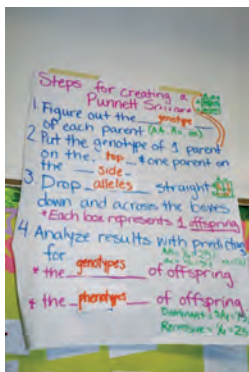 Steps for creating a
Punnett Square
1. Figure out the genotype
of each parent (AA, Aa, aa)
2. Put the genotype of 1 parent
on the top & one parent on
the side.
3. Drop alleles straight
down and across the boxes
*Each box represents 1 offspring
4 Analyze results with
for genotypes
* the of offspring
* the phenotypes of offspring
Dominant =
Recessive =